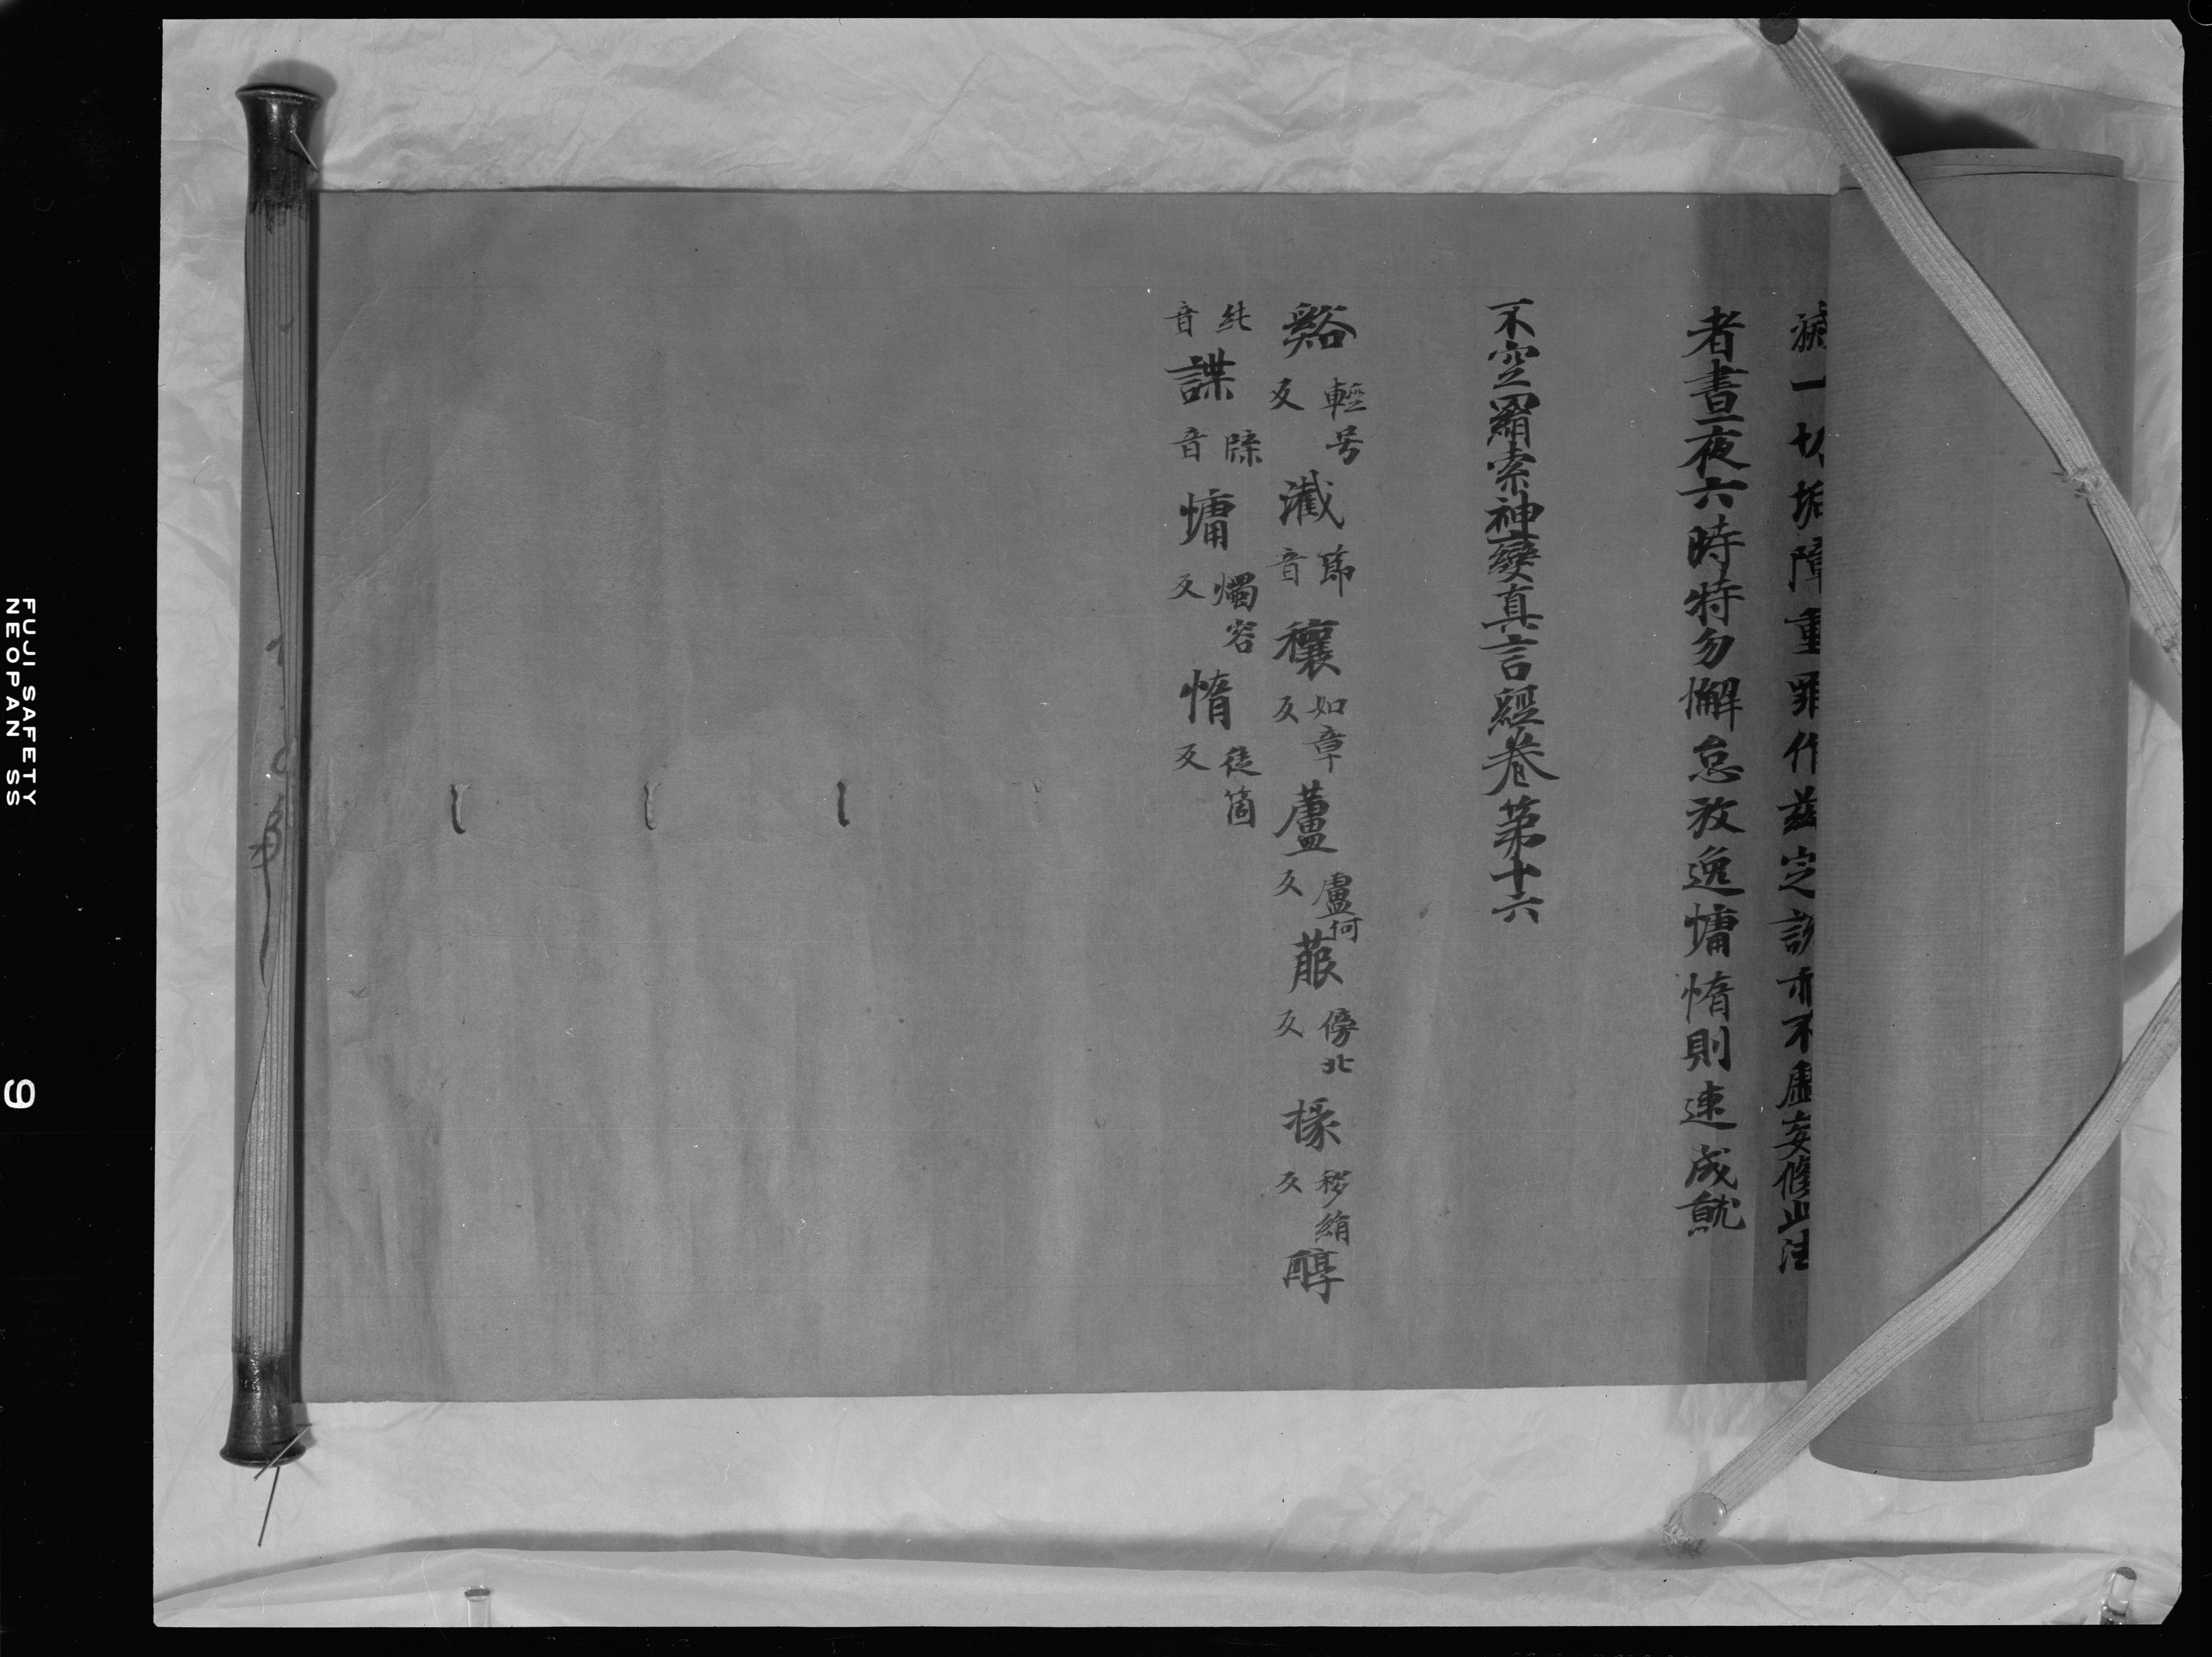 滅一切垢障重罪作茲定說亦不虛妄修此法
者晝夜六時特勿懈怠放逸慵惰則速成就
不空羂索神變真言經卷第十六
谿輕号反 瀐節音 穰如章反 蘆盧何反 菔傍北反 掾移絹反 醇
純音 諜牒音 慵燭容反 惰徒箇反
FUJI SAFETY
NEOPAN SS
9